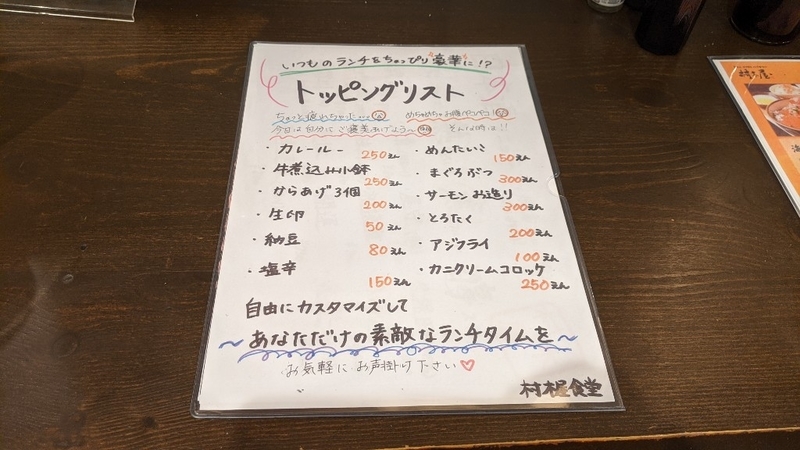 いつものランチをちょっぴり"豪華"に!?
トッピングリスト
ちょっと疲れちゃった〜
めちゃめちゃお腹ペコペコ!
今日は自分にご褒美あげよう〜
そんな時は!!
・カレールー 250えん
・牛煮込み小鉢 250えん
・からあげ3個 200えん
・生卵 50えん
・納豆 80えん
・塩辛 150えん
・めんたいこ 150えん
・まぐろぶつ 300えん
・サーモンお造り 300えん
・とろたく 200えん
・アジフライ 100えん
・カニクリームコロッケ 250えん
自由にカスタマイズして
〜あなただけの素敵なランチタイムを〜
お気軽にお声掛け下さい♡
村木屋食堂